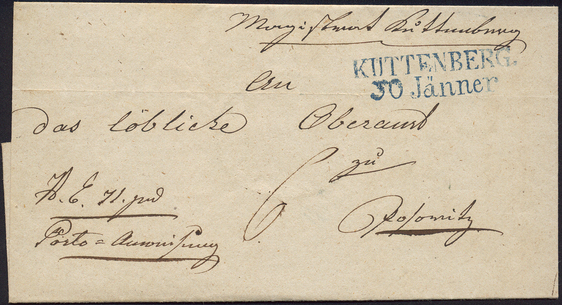 Magistrat Kuttenberg
KUTTENBERG.
30 Jänner
An
das löbliche Oberamt
zu
6
Porto=Anweisung